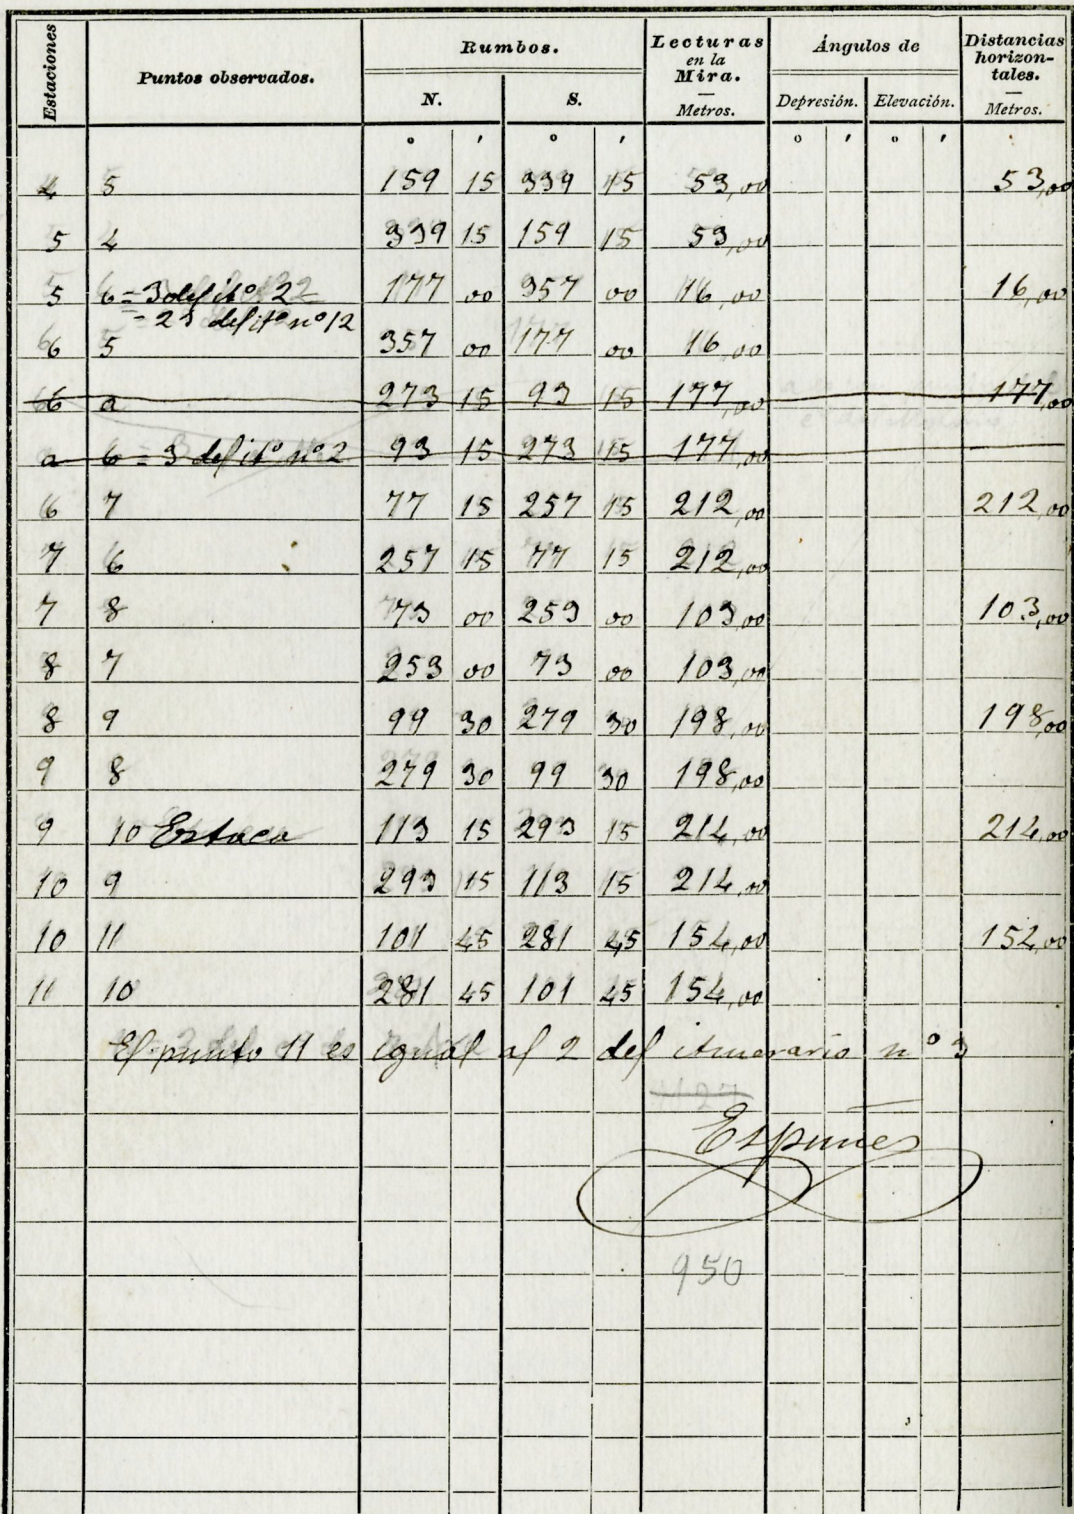 Estaciones
Puntos observados.
Rumbos.
N.
S.
Lecturas
en la
Mira.
Metros.
Ángulos de
Depresión.
Elevación.
Distancias
horizon-
tales.
Metros.
° ' ° ' ° ' ° '
4 5 159 15 339 15 53,00 53,00
5 4 339 15 159 15 53,00
5 6 = 3 del itº 2 177 00 357 00 16,00 16,00
= 23 del itº nº 12
6 5 357 00 177 00 16,00
6 a 273 15 93 15 177,00 177,00
a 6 = 3 del itº nº 2 93 15 273 15 177,00
6 7 77 15 257 15 212,00 212,00
7 6 257 15 77 15 212,00
7 8 73 00 253 00 103,00 103,00
8 7 253 00 73 00 103,00
8 9 99 30 279 30 198,00 198,00
9 8 279 30 99 30 198,00
9 10 Estaca 113 15 293 15 214,00 214,00
10 9 293 15 113 15 214,00
10 11 101 45 281 45 154,00 154,00
11 10 281 45 101 45 154,00
El punto 11 es igual al 2 del itinerario nº 3
1127
Espuñes
950